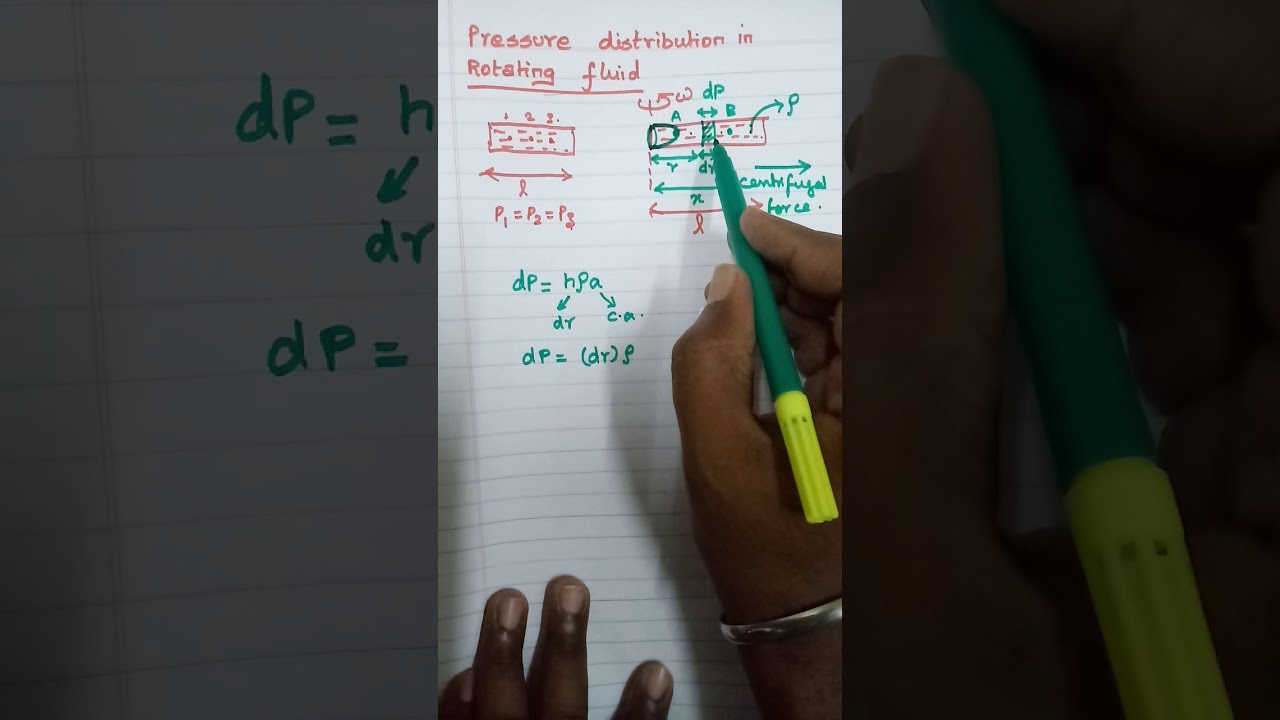 Pressure distribution in
Rotating fluid
ω
dP
1 2 3.
A
B
ρ
r
dr
centrifugal
force.
x
l
l
P₁ = P₂ = P₃
dP = hρa
dr
c.a.
dP = (dr) ρ
dP = h
dr
dP =